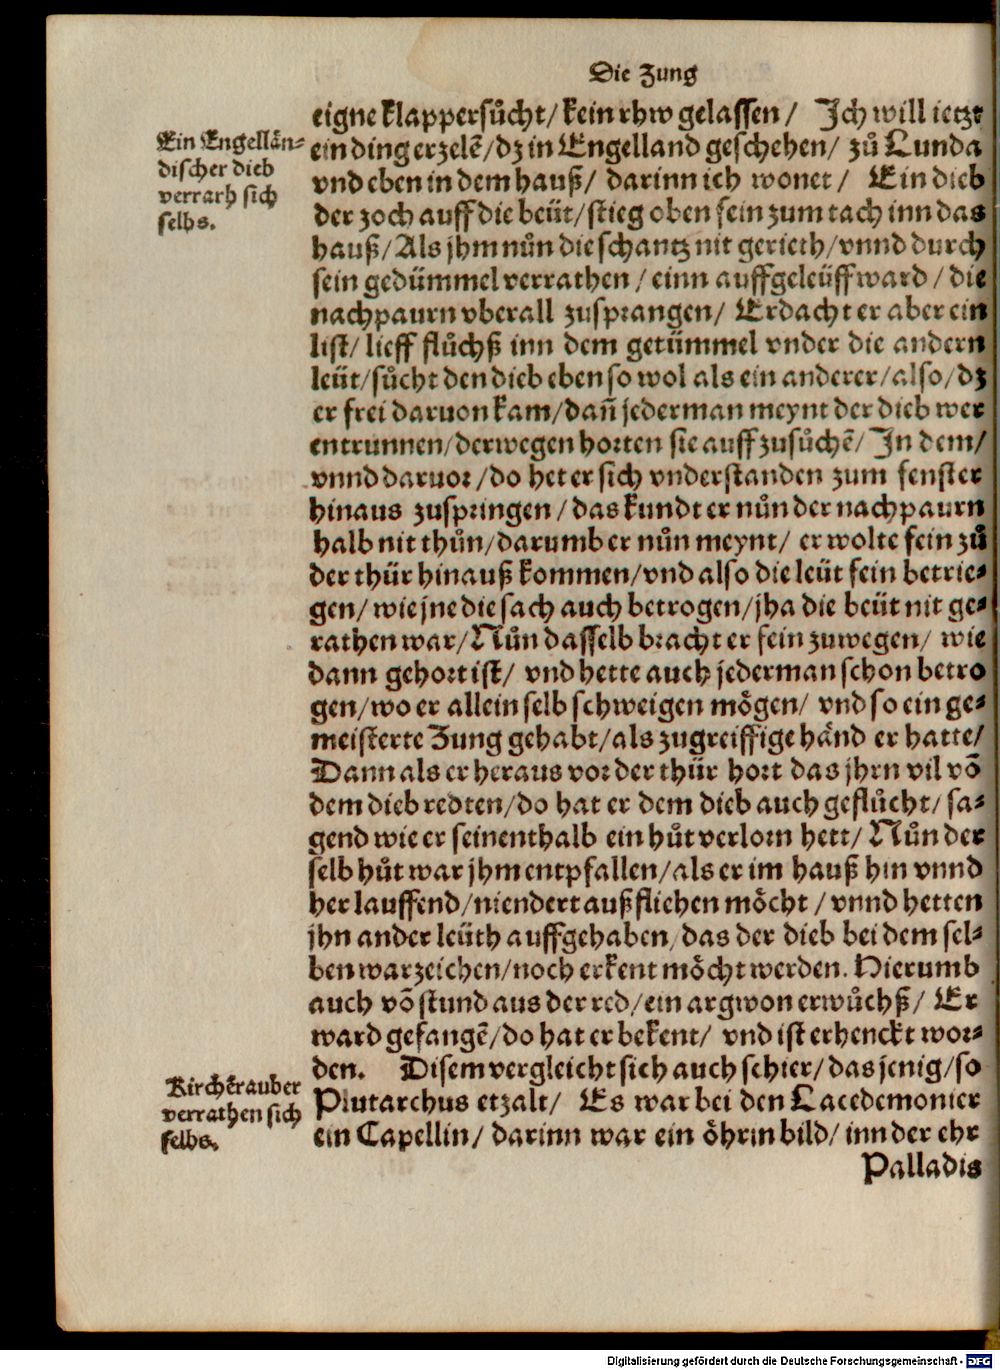 Die Zung
eigne klappersůcht/ kein rhw gelassen/ Jch will ietzt
Ein Engellän-
discher dieb
verrarh sich
selbs.
ein ding erzelẽ/ dz in Engelland geschehen/ zů Lunda
vnd eben in dem hauß/ darinn ich wonet/ Ein dieb
der zoch auff die beüt/ stieg oben sein zum tach inn das
hauß/ Als jhm nůn die schantz nit gerieth/ vnnd durch
sein gedümmel verrathen/ einn auffgeleüff ward/ die
nachpaurn vberall zusprangen/ Erdacht er aber ein
list/ lieff flůchß inn dem getümmel vnder die andern
leüt/ sůcht den dieb eben so wol als ein anderer/ also/ dz
er frei daruon kam/ dañ jederman meynt der dieb wer
entrunnen/ derwegen horten sie auff zusůchẽ/ Jn dem/
vnnd daruor/ do het er sich vnderstanden zum fenster
hinaus zuspringen/ das kundt er nůn der nachpaurn
halb nit thůn/ darumb er nůn meynt/ er wolte fein zů
der thür hinauß kommen/ vnd also die leüt fein betrie-
gen/ wie jne die sach auch betrogen/ jha die beüt nit ge-
rathen war/ Nůn dasselb bracht er fein zuwegen/ wie
dann gehort ist/ vnd hette auch jederman schon betro
gen/ wo er allein selb schweigen mögen/ vnd so ein ge-
meisterte Zung gehabt/ als zugreiffige händ er hatte/
Dann als er heraus vor der thür hort das jhrn vil võ
dem dieb redten/ do hat er dem dieb auch geflůcht/ sa-
gend wie er seinenthalb ein hůt verlorn hett/ Nůn der
selb hůt war jhm entpfallen/ als er im hauß hin vnnd
her lauffend/ niendert auß fliehen möcht/ vnnd hetten
jhn ander leüth auffgehaben/ das der dieb bei dem sel-
ben warzeichen/ noch erkent möcht werden. Hierumb
auch võ stund aus der red/ ein argwon erwůchß/ Er
ward gefangẽ/ do hat er bekent/ vnd ist erhenckt wor-
den. Disem vergleicht sich auch schier/ das jenig/ so
Kirchẽrauber
verrathen sich
selbs.
Plutarchus etzalt/ Es war bei den Lacedemonier
ein Capellin/ darinn war ein öhrin bild/ inn der ehr
Palladis
Digitalisierung gefördert durch die Deutsche Forschungsgemeinschaft - DFG